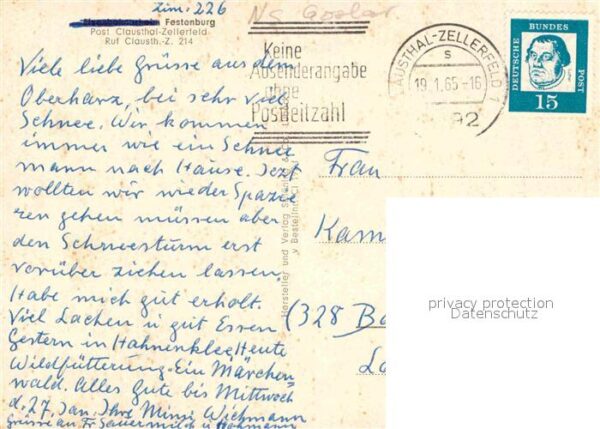 Zim. 226
Festenburg
Post Clausthal-Zellerfeld
Ruf Clausth.-Z. 214
Ns Goslar
Viele liebe Grüsse aus dem
Oberharz, bei sehr viel
Schnee. Wir kommen
immer wie ein Schnee
mann nach Hause. Jezt
wollten wir wieder Spazie
ren gehen müssen aber
den Schneesturm erst
vorüber ziehen lassen.
Habe mich gut erholt.
Viel Lachen u gut Essen
Gestern in Hahnenklee, Heute
Wildfütterung. Ein Märchen
wald. Alles Gute bis Mittwoch
d. 27. Jan. Ihre Minni Wichmann
Grüsse an Fr Sauermilch u
Keine
Absenderangabe
ohne
Postleitzahl
CLAUSTHAL-ZELLERFELD 1
s
19.1.65-16
392
DEUTSCHE BUNDES POST
15
Hersteller und Verlag
Frau
Kam
(328 Ba
La
privacy protection
Datenschutz